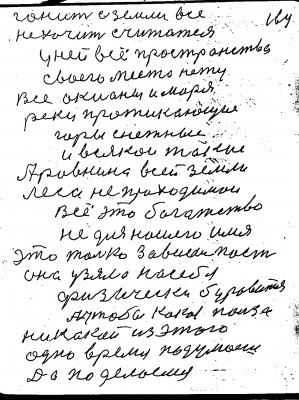 гонит с земли все
не хочит считатся
у ней всё пространства
своего место нету
Все океаны и моря,
реки протикающие
горы снежные
и всякои такие
А ровнина всей земли
леса не проходимои
Всё это богатство
не для нашего имя
это толко
она узяла на себя
физически
Ачтобы кака полза
никакой из этого
одно время подумаеш
Да поделаеш